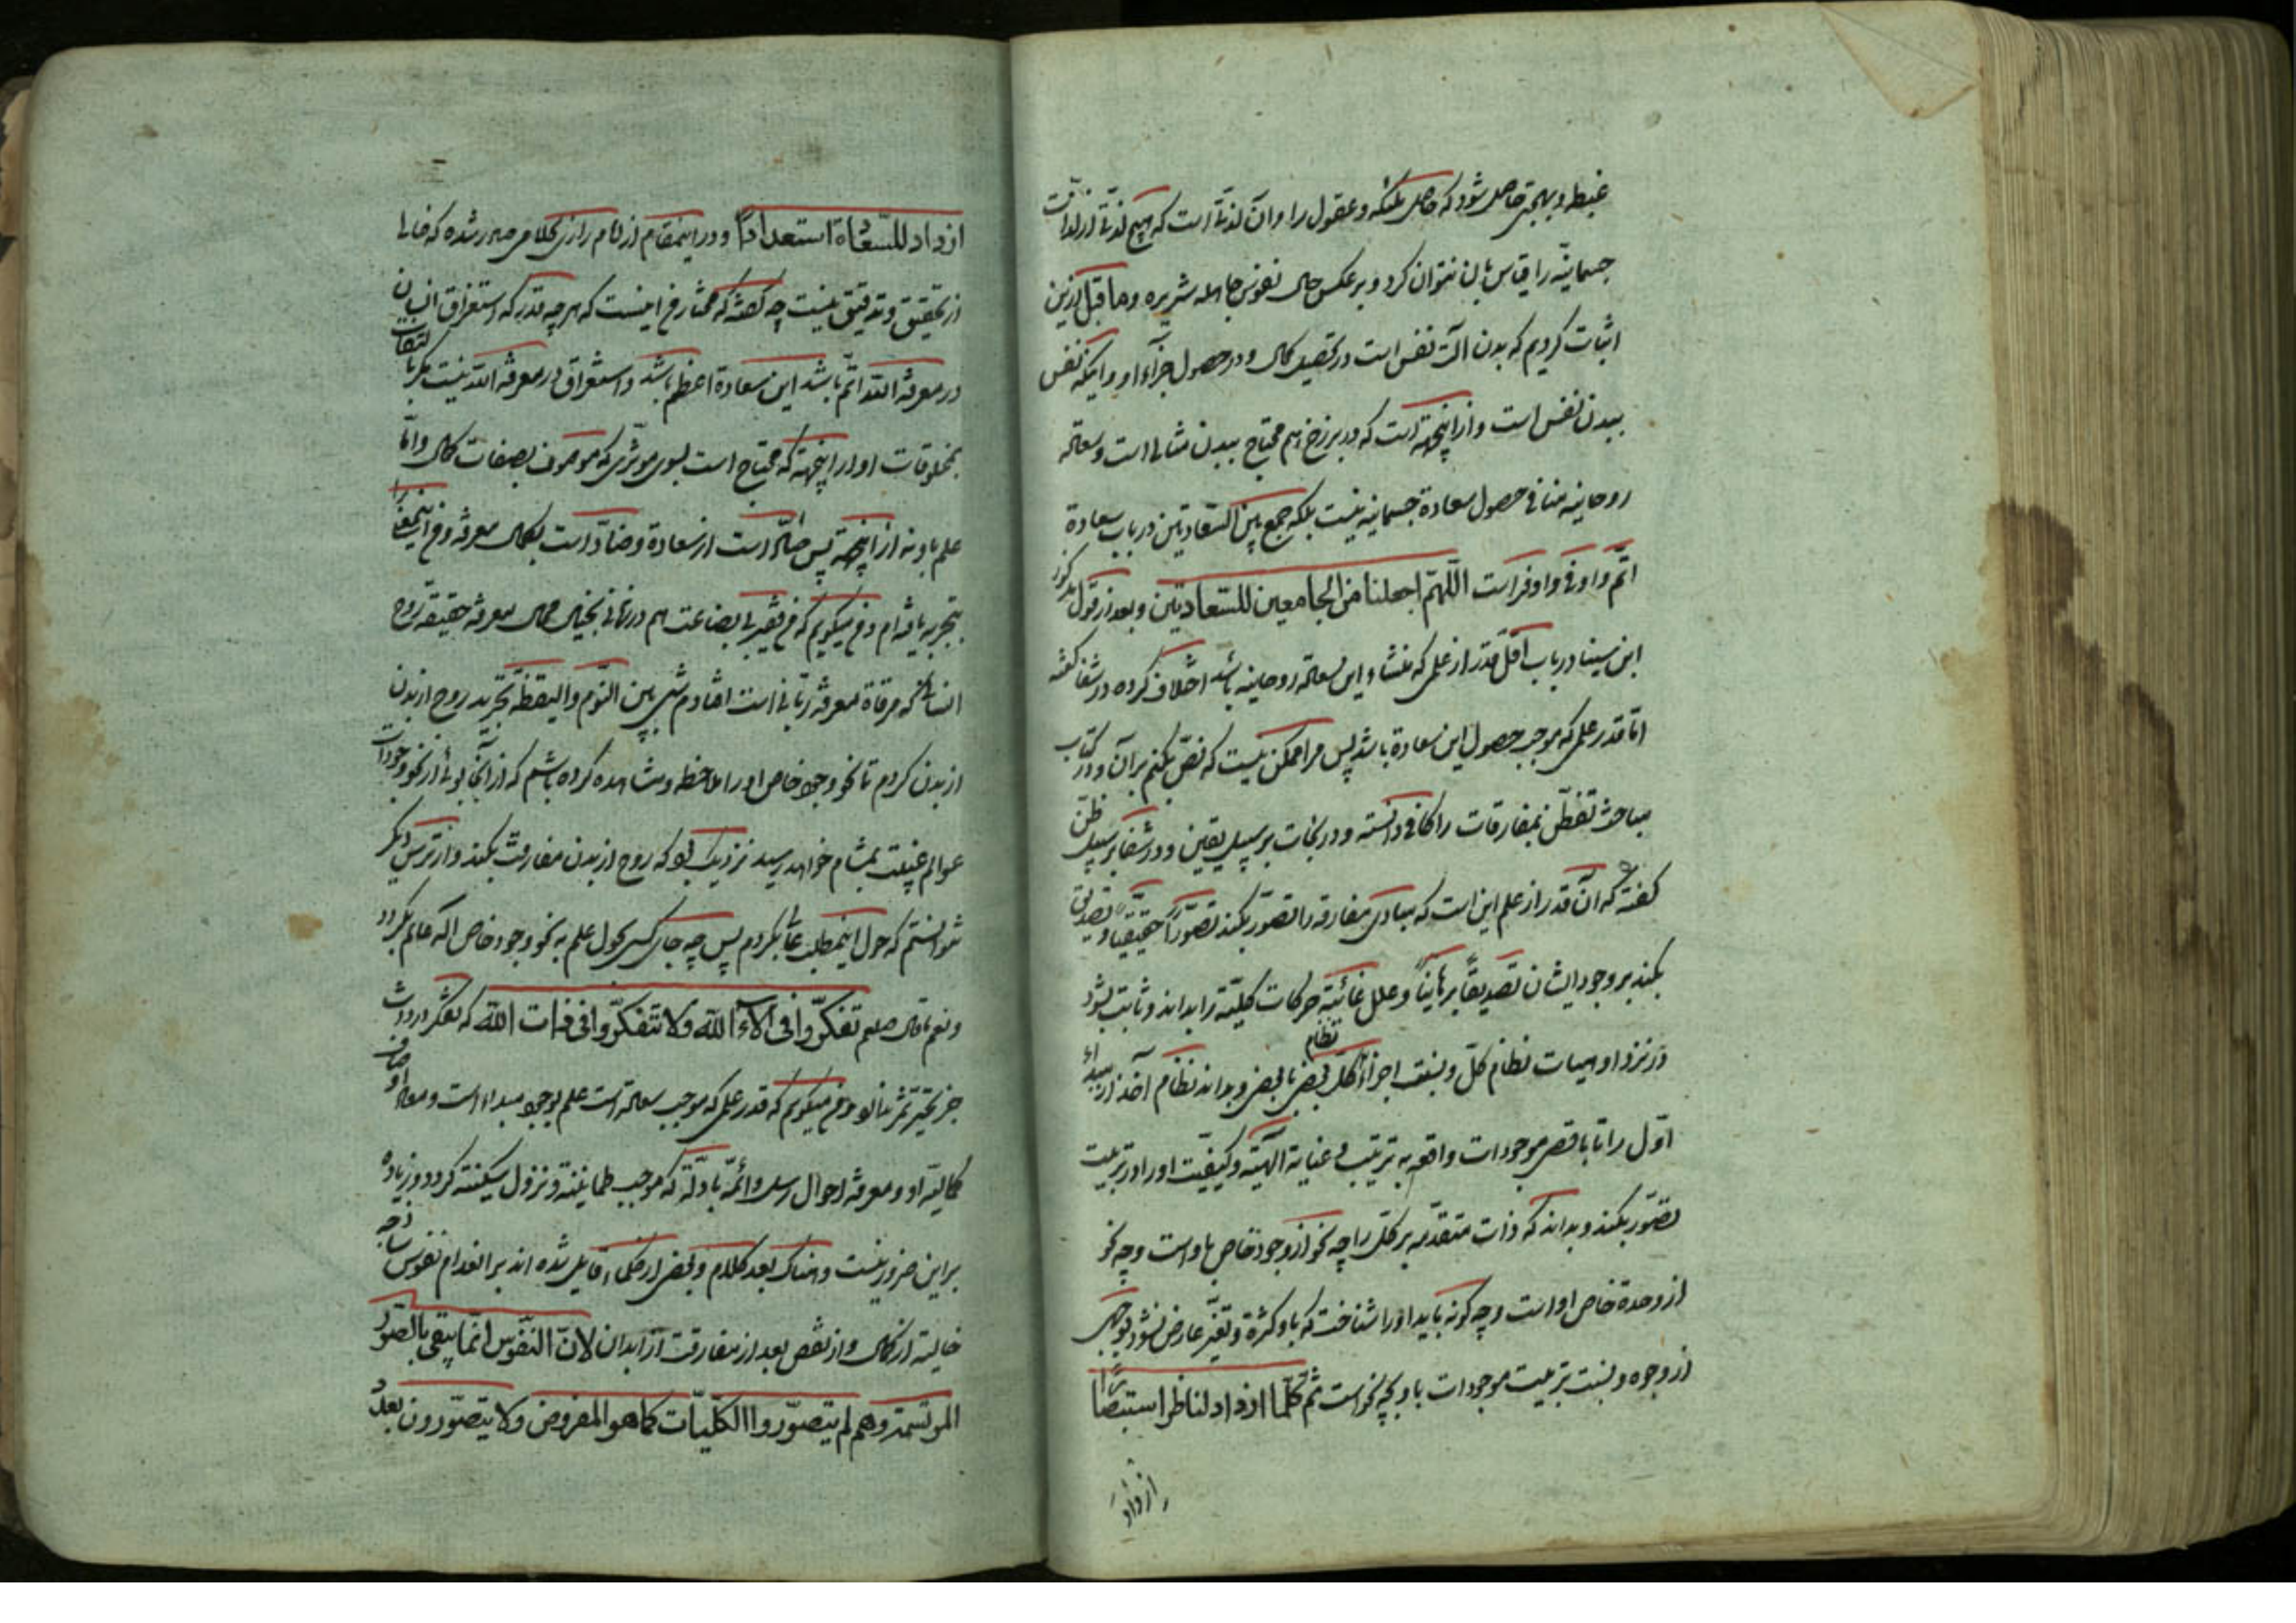 غبطه و بهجتی حاصل شود که حاصل ملئکه و عقول را و آن لذتة است که هیچ لذتة از لذات
جسمانیّه را قیاس بان نتوان کرد و بر عکس حال نفوس جاهله شریره و ما قبل ازین
اثبات کردیم که بدن آلت نفس است در تحصیل کمال و در حصول جزآء او و اینکه نفس
ببدن نفس است و از اینجهة است که در برزخ هم محتاج ببدن مثالی است و سعادة
روحانیه منافی حصول سعادة جسمانیه نیست بلکه جمع بین السّعادتین در باب سعادة
اتمّ و اوفی و اوفر است اللّهمّ اجعلنا من الجامعین للسّعادتین و بعد از قول مذکور
ابن سینا در باب اقلّ قدر از علمی که منشاء این سعادة روحانیه باشد اختلاف کرده در شفا گفته
امّا قدر علمی که موجب حصول این سعادة باشد پس مرا ممکن نیست که نصّ بکنم بران و در کتاب
مباحث تفطّن بمفارقات را کافی دانسته و در نجات بر سبیل یقین و در شفا بر سبیل ظنّ
گفته که آن قدر از علم این است که مبادی مفارقه را تصوّر بکند تصوّراً حقیقیاً و تصدیق
بکند بر وجود ایشان تصدیقاً برهانیّاً و علل غائیّة حرکات کلیّة را بداند و ثابت بشود
در نزد او هیات نظام کلّ و نسبت اجزاء کلّ بعضی با بعضی و بداند نظام آخذ از مبداء
نظام
اوّل را تا باقصی موجودات واقعه به ترتیب و عنایة الهیّة و کیفیّت او را در تربیت
تصوّر بکند و بداند که ذات متقدّمه بر کلّ را چه نحو از وجود خاص باو است و چه نحو
از وحدة خاص او است و چه گونه باید او را شناخت که باو کثرة و تغیّر عارض نشود بوجهی
از وجوه و نسبت تربیت موجودات باو بچه نحو است ثم کلّما ازداد لناظر استبصاراً
ازداد
ازداد للسّعادة استعداداً و در اینمقام از امام رازی کلامی صادر شده که خالی
از تحقیق و تدقیق نیست چه گفته که مختار من اینست که هر چه قدر که استغراق انسان
در معرفة الله اتمّ باشد این سعادة اعظم باشد و استغراق در معرفة الله نیست مگر با التفات
بمخلوقات او از اینجهة که محتاج است بسوی موثّری که موصوف بصفات کمال و امّا
علم باو نه از اینجهة پس ضالّ است از سعادة و مضادّ است بکمال معرفة و من اینمعنی را
بتجربه یافته ام و من میگویم که من فقیر بی بضاعت هم در زمانی بخیال محال معرفة حقیقة روح
انسانی که مرقاة معرفة ربّانی است افتادم شبی بین النّوم و الیقظة تجرید روح از بدن
از بدن کردم تا نحو وجود خاص او را ملاحظه و مشاهده کرده باشم که از آنجا بوئی از نحو وجودات
عوالم غیبت بمشام خواهد رسید نزدیک بود که روح از بدن مفارقت بکند و از ترس دیگر
نتوانستم که حول اینمطلب عالی بگردم پس چه جای کسی بحول علم به نحو وجود خاص اله عالم بگردد
و نعم ما قال صلعم تفکرّوا فی آلاء اللّه و لا تتفکرّوا فی ذات اللّه که تفکّر در ذات
جز تحیّر ثمر نبا و من میگویم که قدر علمی که موجب سعادة است علم بوجود مبداء است و معاد و اوصاف
کمالیّه او و معرفة احوال رسل و ائمّة بادلّه که موجب طمانینة و نزول سکینة گردد و زیاده
براین ضرور نیست و هناک بعد کلام و بعضی از حکماء قایل شده اند بر انعدام نفوس ساذجه
خالیة از کمال و از نقص بعد از مفارقت از ابدان لانّ النّفوس انّما یبقی بالصّور
المرتسمة و هم لم یتصوّروا الکلّیّات کما هو المفروض و لا یتصوّرون بعد